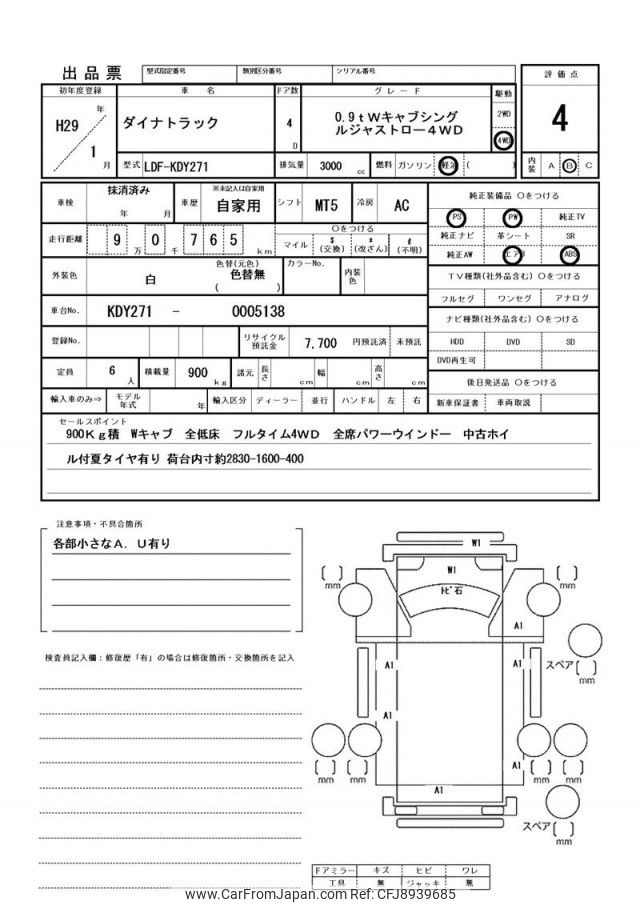 出品票 型式指定番号 類別区分番号 シリアル番号
初年度登録 車名 ドア数 グレード 駆動 評価点
H29年 ダイナトラック 4D 0.9tWキャブシング 2WD 4
ルジャストロー4WD 4WD
1月 型式 LDF-KDY271 排気量 3000cc 燃料 ガソリン 軽油 ( ) 内装 A B C
車検 抹消済み 年 月 車歴 ※未記入は自家用 自家用 シフト MT5 冷房 AC 純正装備品 〇をつける
PS PW 純正TV
走行距離 90万765 千 km 〇をつける
マイル $(交換) *(改ざん) #(不明) 純正ナビ 革シート SR
純正AW エアB ABS
外装色 白 色替(元色) 色替無 ( ) カラーNo. 内装色 TV種類(社外品含む) 〇をつける
フルセグ ワンセグ アナログ
車台No. KDY271 - 0005138 ナビ種類(社外品含む) 〇をつける
登録No. リサイクル預託金 7,700 円預託済 未預託 HDD DVD SD
DVD再生可
定員 6人 積載量 900kg 諸元 長さ cm 幅 cm 高さ cm 後日発送品 〇をつける
輸入車のみ⇒ モデル年式 年 輸入区分 ディーラー 並行 ハンドル 左 右 新車保証書 車両取説
セールスポイント
900Kg積 Wキャブ 全低床 フルタイム4WD 全席パワーウインドー 中古ホイ
ル付夏タイヤ有り 荷台内寸約2830-1600-400
注意事項・不具合箇所
各部小さなA.U有り
検査員記入欄:修復歴「有」の場合は修復箇所・交換箇所を記入
W1
W1
トビ石
mm mm
A1
A1 A1
スペア
mm
A1
A1
mm mm mm mm
A1
スペア
mm
ドアミラー キズ ヒビ ワレ
工具 無 ジャッキ 無
www.CarFromJapan.com Ref:CFJ8939685